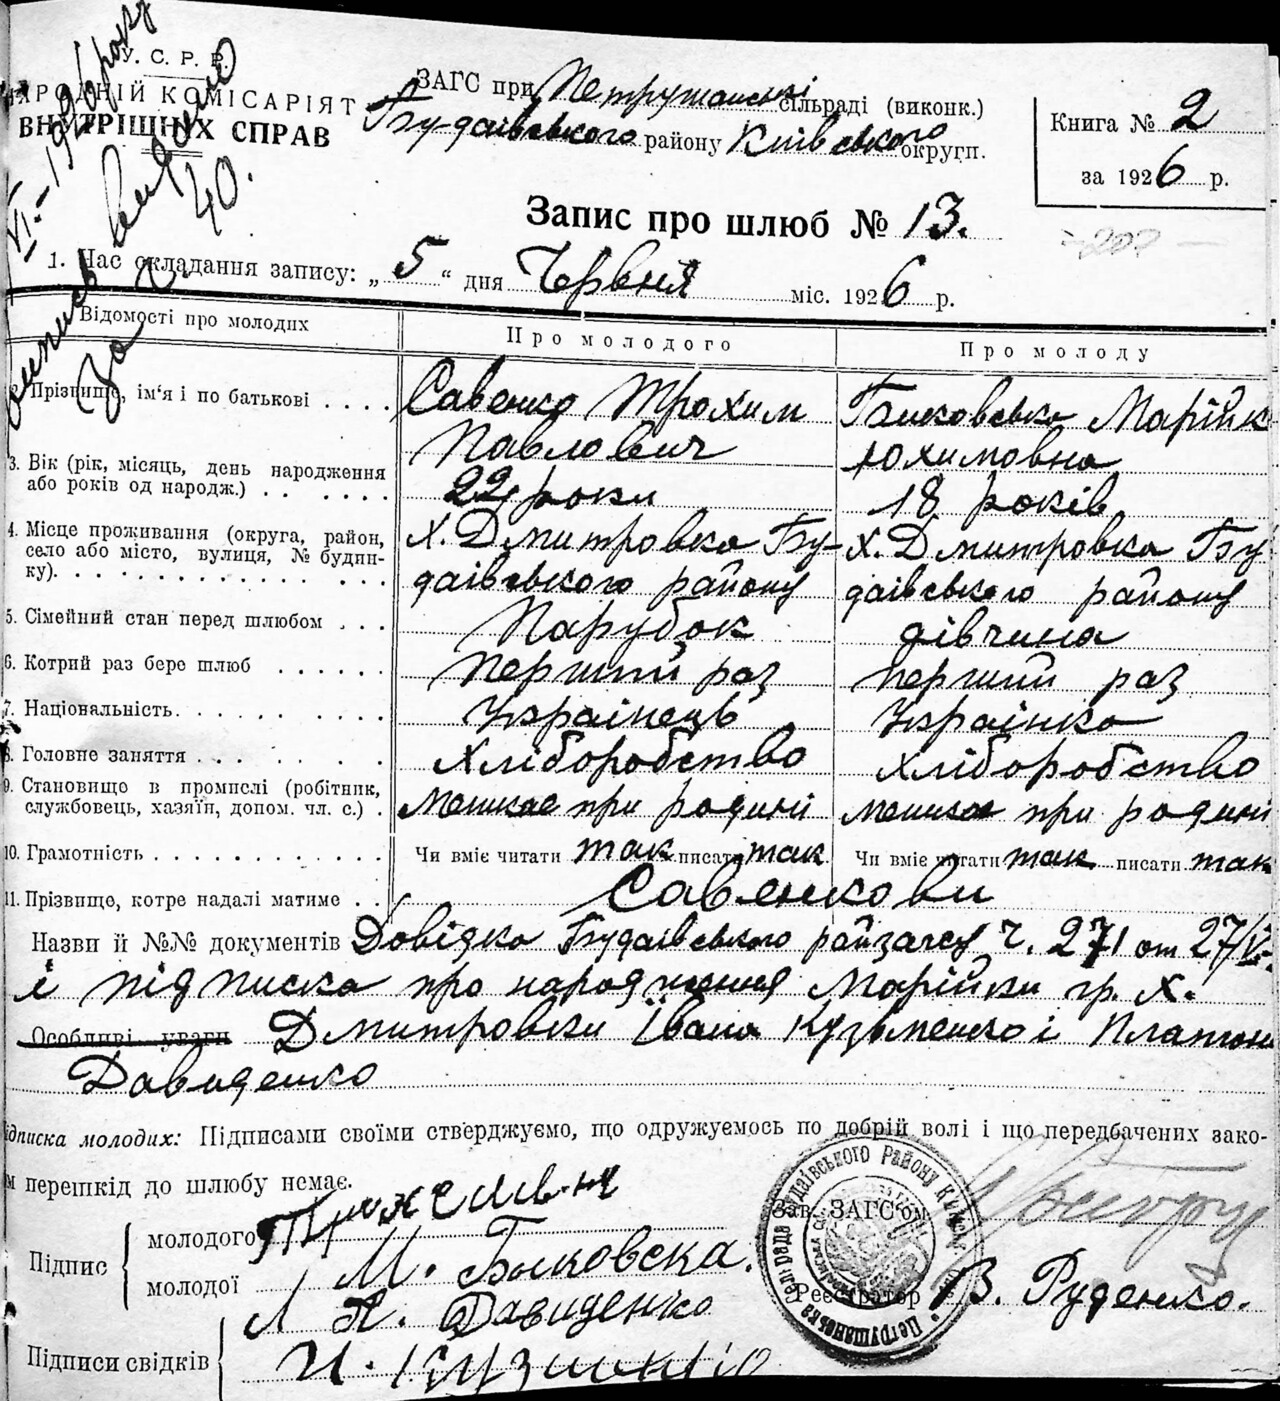 У. С. Р. Р.
НАРОДНІЙ КОМІСАРІЯТ
ВНУТРІШНІХ СПРАВ
VI.–1926 року
за
40.
ЗАГС при Петрушанські сільраді (виконк.)
Будаівського району Київського округи.
Книга № 2
за 1926 р.
Запис про шлюб № 13.
207
1. Час складання запису: „5“ дня Червня міс. 1926 р.
Відомості про молодих
Про молодого
Про молоду
2. Прізвище, ім‘я і по батькові
Савенко Трохим
Павлович
Биковська Марійка
Юхимовна
3. Вік (рік, місяць, день народження
або років од народж.)
22 роки
18 років
4. Місце проживання (округа, район,
село або місто, вулиця, № будин-
ку).
Х. Дмитровка Бу-
даівського району
Х. Дмитровка Бу
даівського району
5. Сімейний стан перед шлюбом
Парубок
дівчина
6. Котрий раз бере шлюб
перший раз
перший раз
7. Національність
Украінець
Украінка
8. Головне заняття
хліборобство
хліборобство
9. Становище в промислі (робітник,
службовець, хазяїн, допом. чл. с.)
мешкае при родині
мешкае при родині
10. Грамотність
Чи вміє читати так писати так
Чи вміє читати так писати так
11. Прізвище, котре надалі матиме
Савенкови
Назви й №№ документів Довідка Будаівського райзагсу ч. 271 от 27/V.
і підписка про народження Марійки гр. Х.
Особливі уваги Дмитровки Івана Кузьменко і Платона
Давиденко
Підписка молодих: Підписами своїми стверджуємо, що одружуємось по добрій волі і що передбачених зако-
м перешкід до шлюбу немає.
Підпис
молодого
молодої М. Быковска.
Підписи свідків
П. Давиденко
И.
Зав. ЗАГС‘ом
Реєстратор В. Руденко.
Петрушанська сел. рада Будаівського Району